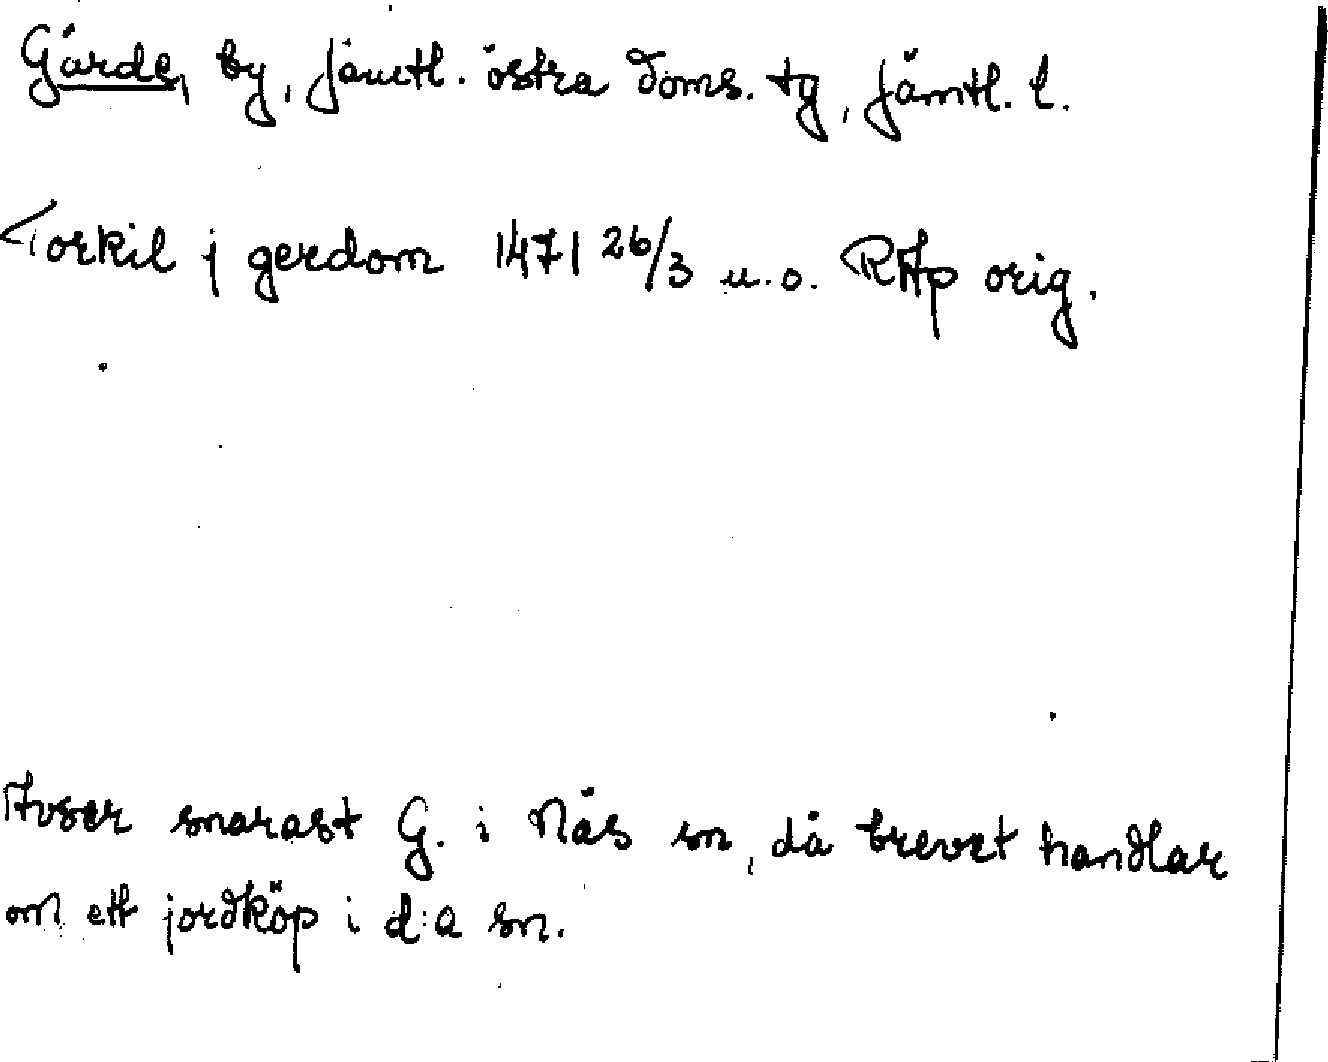 Gärde, by, Jämtl. östra doms. tg, Jämtl. l.
Torkil j gerdom 1471 26/3 u.o. RAp orig.
Avser snarast G. i Näs sn, då brevet handlar
om ett jordköp i d:a sn.